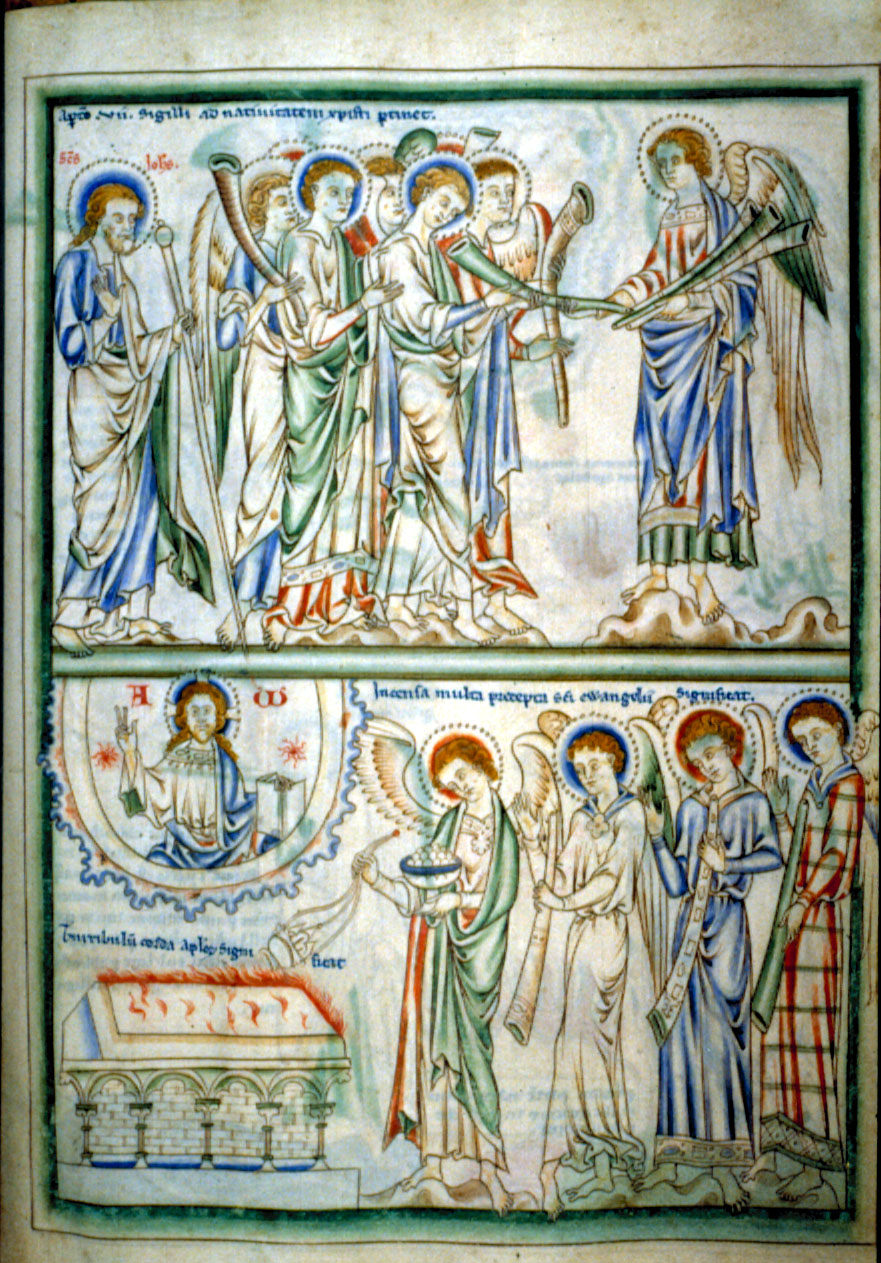 ap̄tō .vii. sigilli ad natiuitatem xpisti ꝑtinet.
sc̄s Ioh̄s.
A ω
Incensa multa precepta sc̄i ewangelii significat.
Thuribulū corda ap̄loꝝ signi
ficat